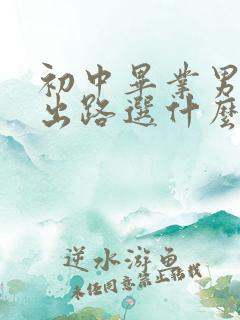 初中畢業男
出路選什麼
逆水游魚
未任同意禁止轉載